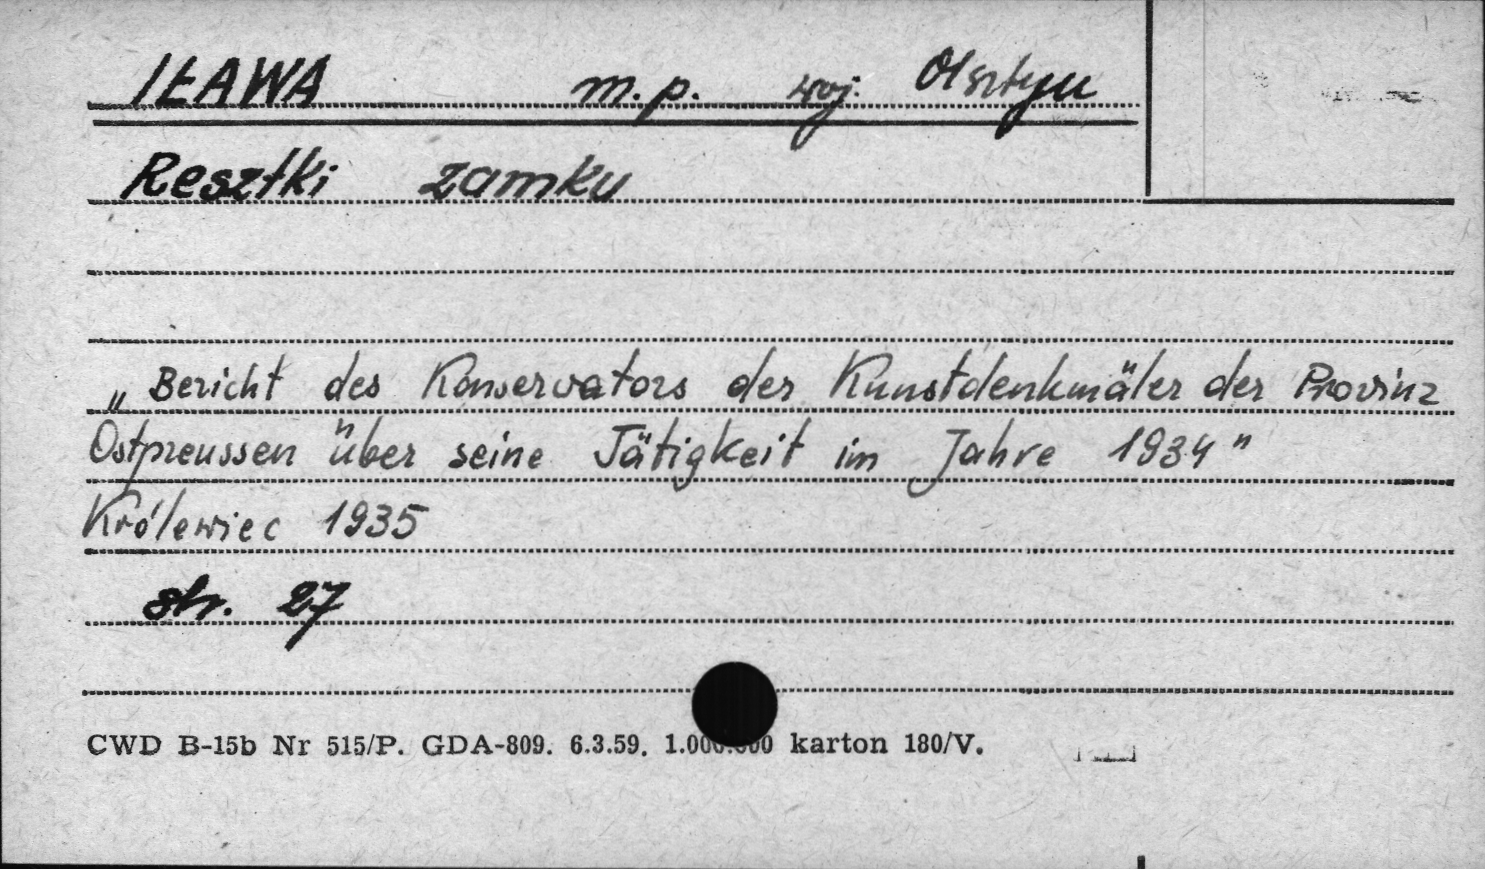 IŁAWA m.p. woj. Olsztyn
Resztki zamku
„Bericht des Konservators der Kunstdenkmäler der Provinz
Ostpreussen über seine Tätigkeit im Jahre 1934"
Królewiec 1935
str. 27
CWD B-15b Nr 515/P. GDA-809. 6.3.59. 1.000.000 karton 180/V.